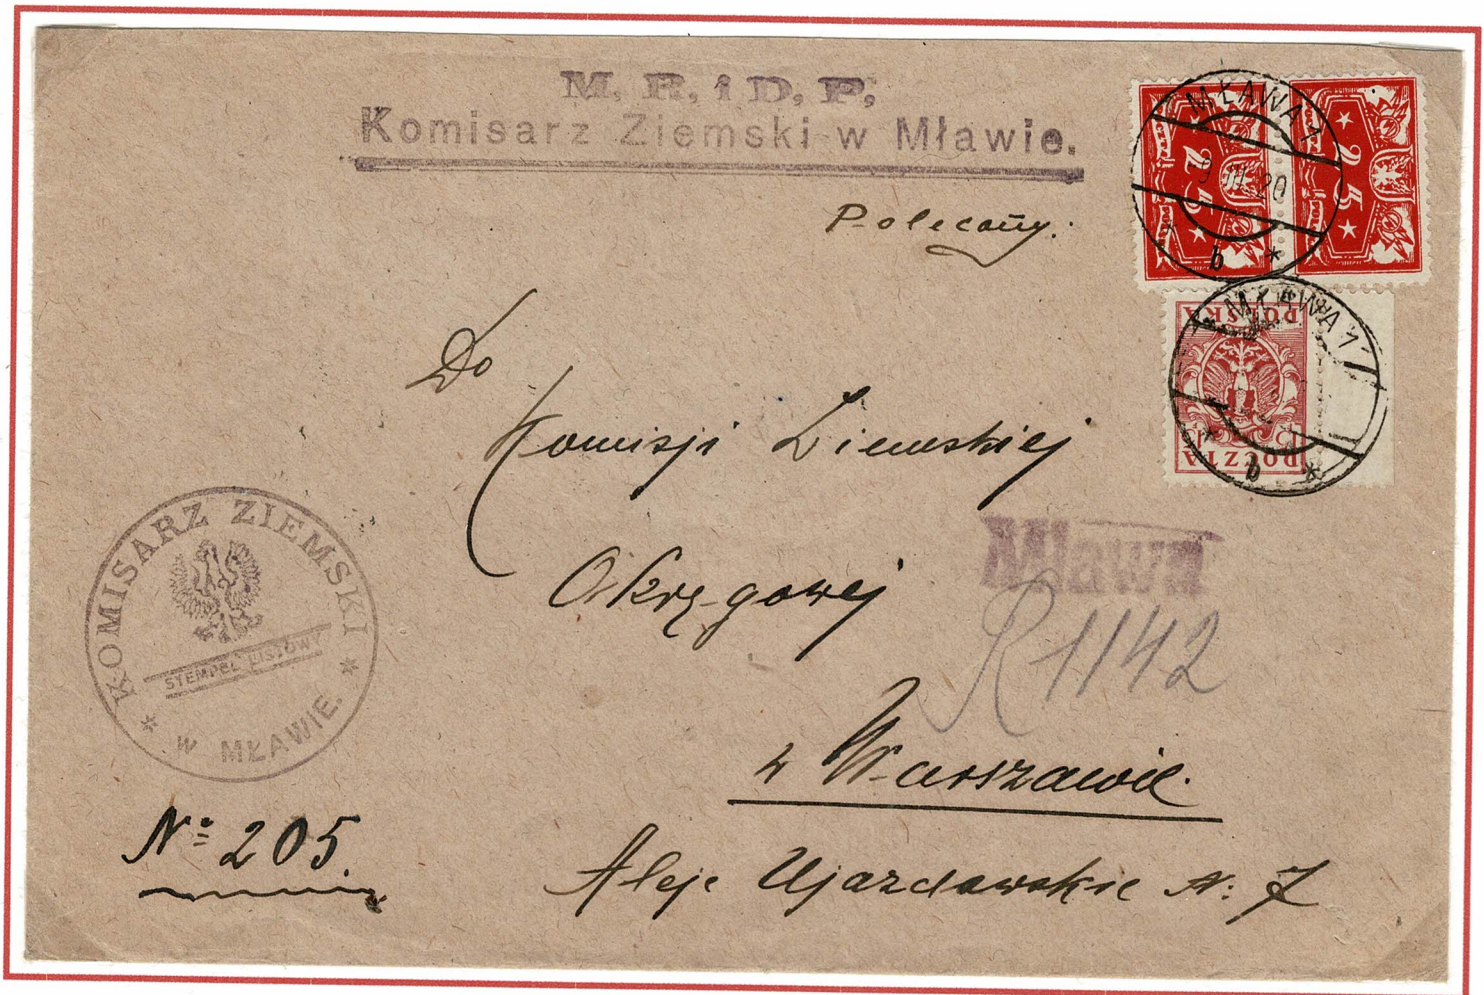 M. R. i D. P.
Komisarz Ziemski w Mławie.
Polecony.
MŁAWA 1
20
b *
25
25
MŁAWA 1
* b *
POCZTA
POLSKA
Do
Komisji Ziemskiej
Okręgowej
w Warszawie.
Aleje Ujazdowskie N: 7
Mława
R 1142
KOMISARZ ZIEMSKI
STEMPEL LISTOWY
* w MŁAWIE. *
No 205.